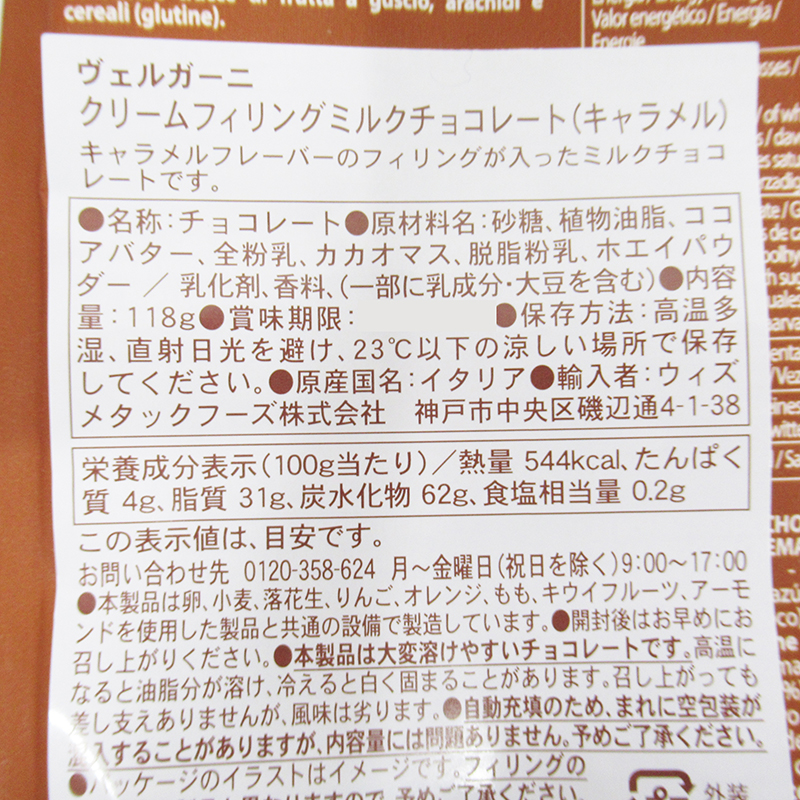 cereali (glutine).
Valor energético / Energía /
Energie
ヴェルガーニ
クリームフィリングミルクチョコレート(キャラメル)
キャラメルフレーバーのフィリングが入ったミルクチョコ
レートです。
●名称:チョコレート●原材料名:砂糖、植物油脂、ココ
アバター、全粉乳、カカオマス、脱脂粉乳、ホエイパウ
ダー/乳化剤、香料、(一部に乳成分・大豆を含む)●内容
量:118g●賞味期限: ●保存方法:高温多
湿、直射日光を避け、23℃以下の涼しい場所で保存
してください。●原産国名:イタリア●輸入者:ウィズ
メタックフーズ株式会社 神戸市中央区磯辺通4-1-38
栄養成分表示(100g当たり)/熱量 544kcal、たんぱく
質 4g、脂質 31g、炭水化物 62g、食塩相当量 0.2g
この表示値は、目安です。
お問い合わせ先 0120-358-624 月~金曜日(祝日を除く)9:00~17:00
●本製品は卵、小麦、落花生、りんご、オレンジ、もも、キウイフルーツ、アーモ
ンドを使用した製品と共通の設備で製造しています。●開封後はお早めにお
召し上がりください。●本製品は大変溶けやすいチョコレートです。高温に
なると油脂分が溶け、冷えると白く固まることがあります。召し上がっても
差し支えありませんが、風味は劣ります。●自動充填のため、まれに空包装が
混入することがありますが、内容量には問題ありません。予めご了承ください。
●パッケージのイラストはイメージです。フィリングの
外装